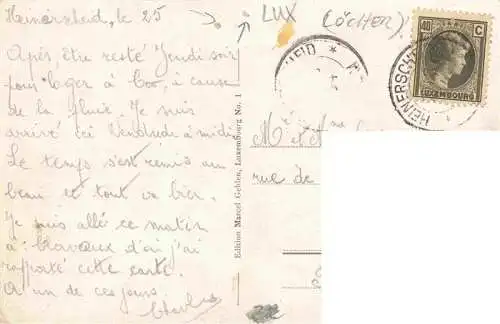 Heinerscheid, le 25
Après, être resté Jeudi soir
pour loger à Goe, à cause
de la pluie. Je suis
arrivé ici Vendredi à midi
Le temps s'est remis au
beau et tout va bien.
Je suis allé ce matin
à Clervaux d'où j'ai
rapporté cette carte.
A un de ces jours.
Charles
Edition Marcel Gehlen, Luxembourg No. 1
LUX (ÖCHER)
40 C
LUXEMBOURG
HEINERSCH
EID
M et M
rue de